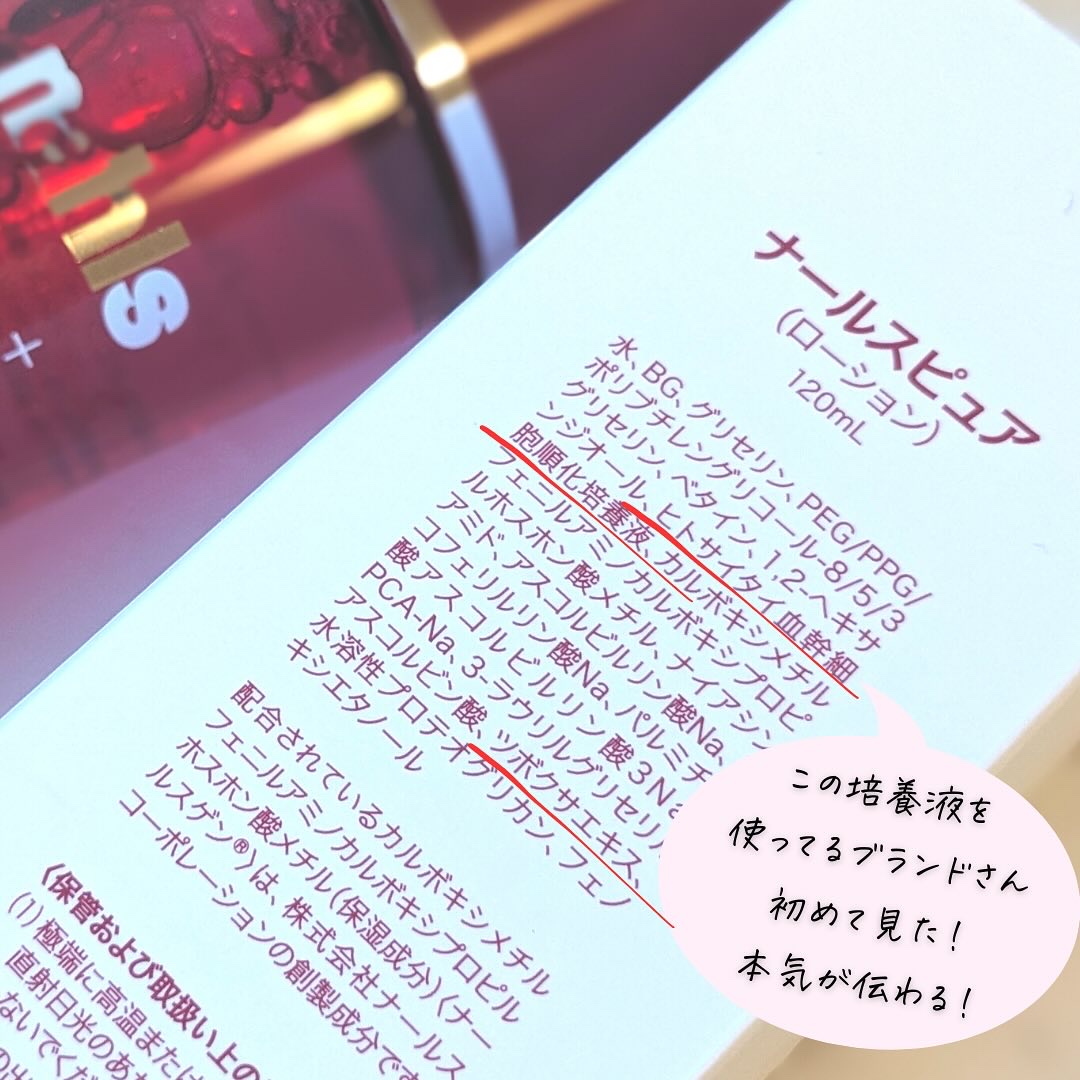 nails
+
ナールスピュア
(ローション)
120mL
水、BG、グリセリン、PEG/PPG/
ポリブチレングリコール-8/5/3
グリセリン、ベタイン、1,2-ヘキサ
ンジオール、ヒトサイタイ血幹細
胞順化培養液、カルボキシメチル
フェニルアミノカルボキシプロピ
ルホスホン酸メチル、ナイアシン
アミド、アスコルビルリン酸Na、
コフェリルリン酸Na、パルミチ
酸アスコルビルリン酸3Na
PCA-Na、3-ラウリルグリセリル
アスコルビン酸、ツボクサエキス、
水溶性プロテオグリカン、フェノ
キシエタノール
配合されているカルボキシメチル
フェニルアミノカルボキシプロピル
ホスホン酸メチル(保湿成分)〈ナー
ルスゲン®〉は、株式会社ナールス
コーポレーションの創製成分です
〈保管および取扱い上の
(1)極端に高温または
直射日光のあ
ないでくだ
この培養液を
使ってるブランドさん
初めて見た!
本気が伝わる!